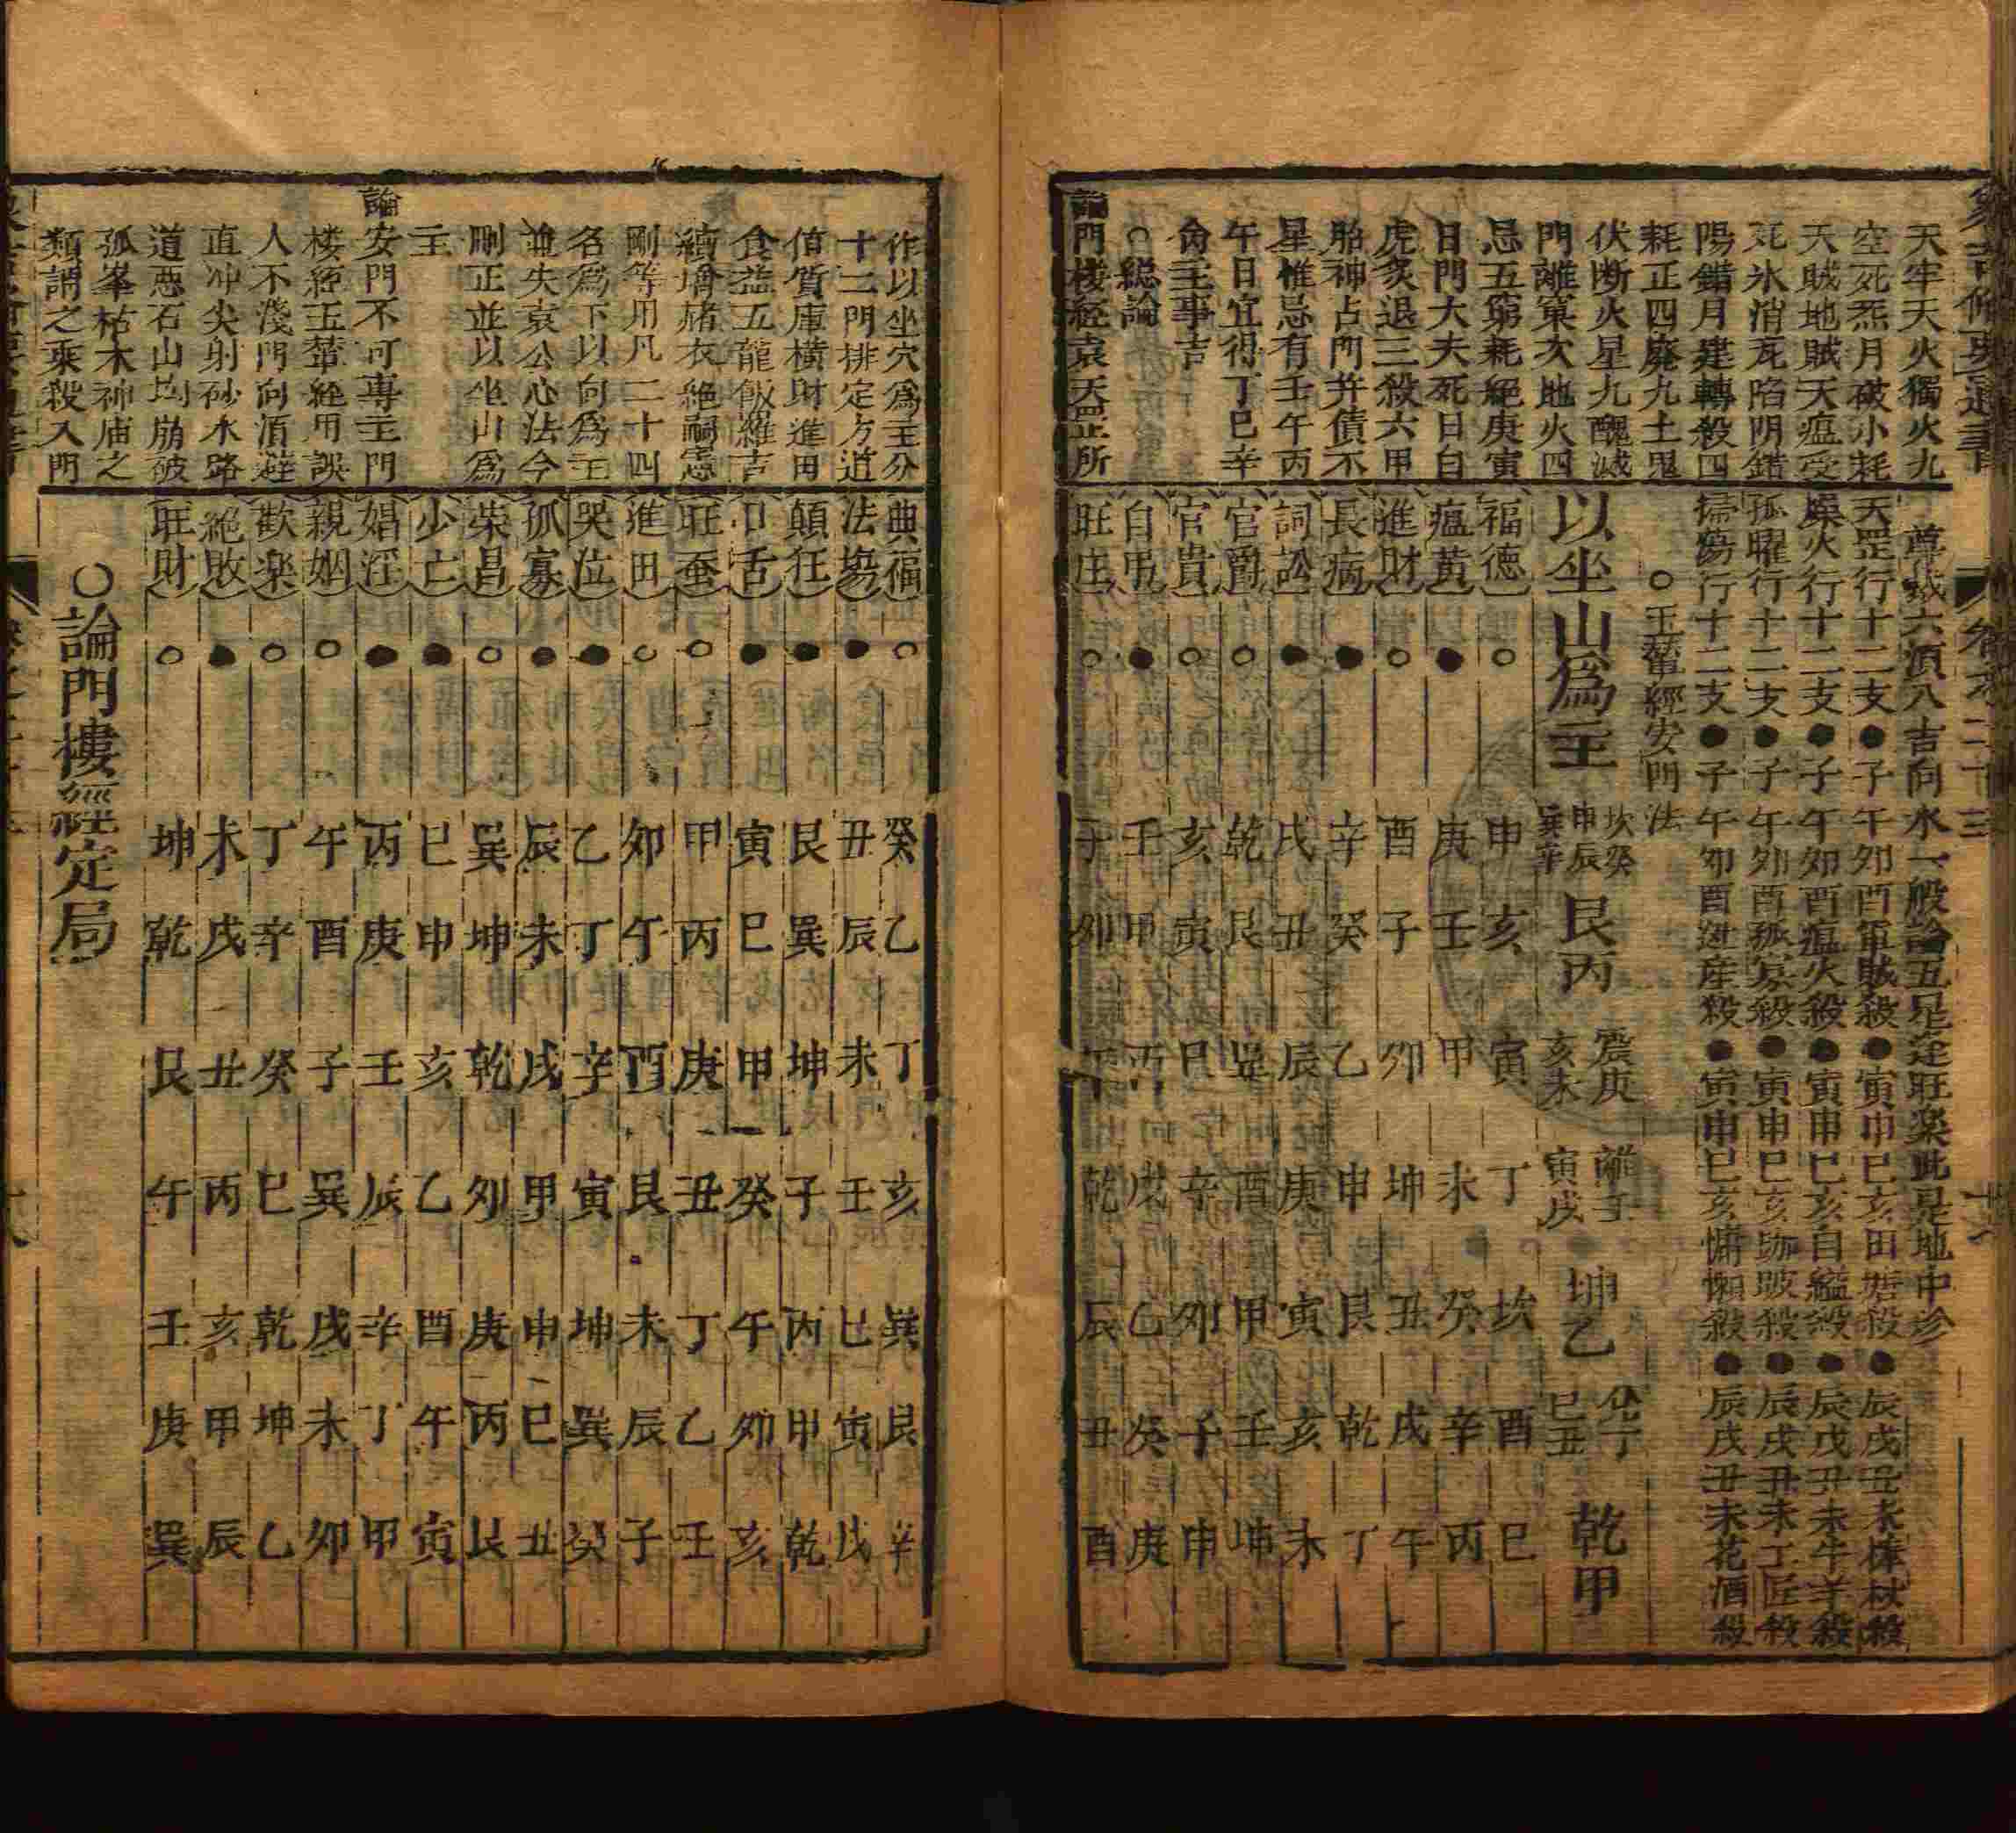 天牢天火獨火九
空死炁月破小耗
天賊地賊天瘟受
死氷消瓦陷阴錯
陽錯月建轉殺四
耗正四廢九土鬼
伏断火星九醜滅
門離窠次地火四
忌五窮耗絕庚寅
日門大夫死日白
虎炙退三殺六甲
胎神占門并債不
星惟忌有壬午丙
午日宜得丁巳辛
㑹主事吉
○総論
論門楼経袁天罡所
六須八吉向水一般論五星定旺楽此是地中珍
天罡行十二支●子午卯酉軍賊殺●寅申巳亥田塘殺●辰戌丑未棒杖殺
燥火行十二支●子午卯酉瘟火殺●寅申巳亥自縊殺●辰戌丑未牛羊殺
孤曜行十二支●子午卯酉孤寡殺●寅申巳亥跏跛殺●辰戌丑未工匠殺
掃蕩行十二支●子午卯酉延産殺●寅申巳亥慵懶殺●辰戌丑未花酒殺
○玉輦經安門法
以坐山爲主 坎癸申辰巽辛 艮丙 震庚亥未 離壬寅戌 坤乙 兌丁巳丑 乾甲
福德 ○ 申 亥 寅 丁 坎 酉 巳
瘟黃 ● 庚 壬 甲 未 癸 辛 丙
進財 ○ 酉 子 卯 坤 丑 戌 午
長病 ● 辛 癸 乙 申 艮 乾 丁
詞訟 ● 戌 丑 辰 庚 寅 亥 未
官爵 ○ 乾 艮 巽 酉 甲 壬 坤
官貴 ○ 亥 寅 巳 辛 卯 子 申
自吊 ● 壬 甲 丙 戌 乙 癸 庚
旺庄 ○ 子 卯 午 乾 辰 丑 酉
作以坐穴為主分
十二門排定方道
値質庫橫財進田
食益五龍飯羅吉
續增赭衣絶嗣惡
剛等用凡二十四
名爲下以向爲主
並失袁公心法今
刪正並以坐山爲
主
論安門不可專主門
楼經玉輦經用誤
人不淺門向湏避
直冲尖射砂水路
道惡石山均崩破
孤峯枯木神庙之
類謂之乘殺入門
典福 ○ 癸 乙 丁 亥 巽 艮 辛
法塲 ● 丑 辰 未 壬 巳 寅 戌
顛狂 ● 艮 巽 坤 子 丙 甲 乾
口舌 ● 寅 巳 甲 癸 午 卯 亥
旺蚕 ○ 甲 丙 庚 丑 丁 乙 壬
進田 ○ 卯 午 酉 艮 未 辰 子
哭泣 ● 乙 丁 辛 寅 坤 巽 癸
孤寡 ● 辰 未 戌 甲 申 巳 丑
荣昌 ○ 巽 坤 乾 卯 庚 丙 艮
少亡 ● 巳 申 亥 乙 酉 午 寅
娼淫 ● 丙 庚 壬 辰 辛 丁 甲
親姻 ○ 午 酉 子 巽 戌 未 卯
歡楽 ○ 丁 辛 癸 巳 乾 坤 乙
絕敗 ● 未 戌 丑 丙 亥 甲 辰
旺財 ○ 坤 乾 艮 午 壬 庚 巽
○論門樓經定局